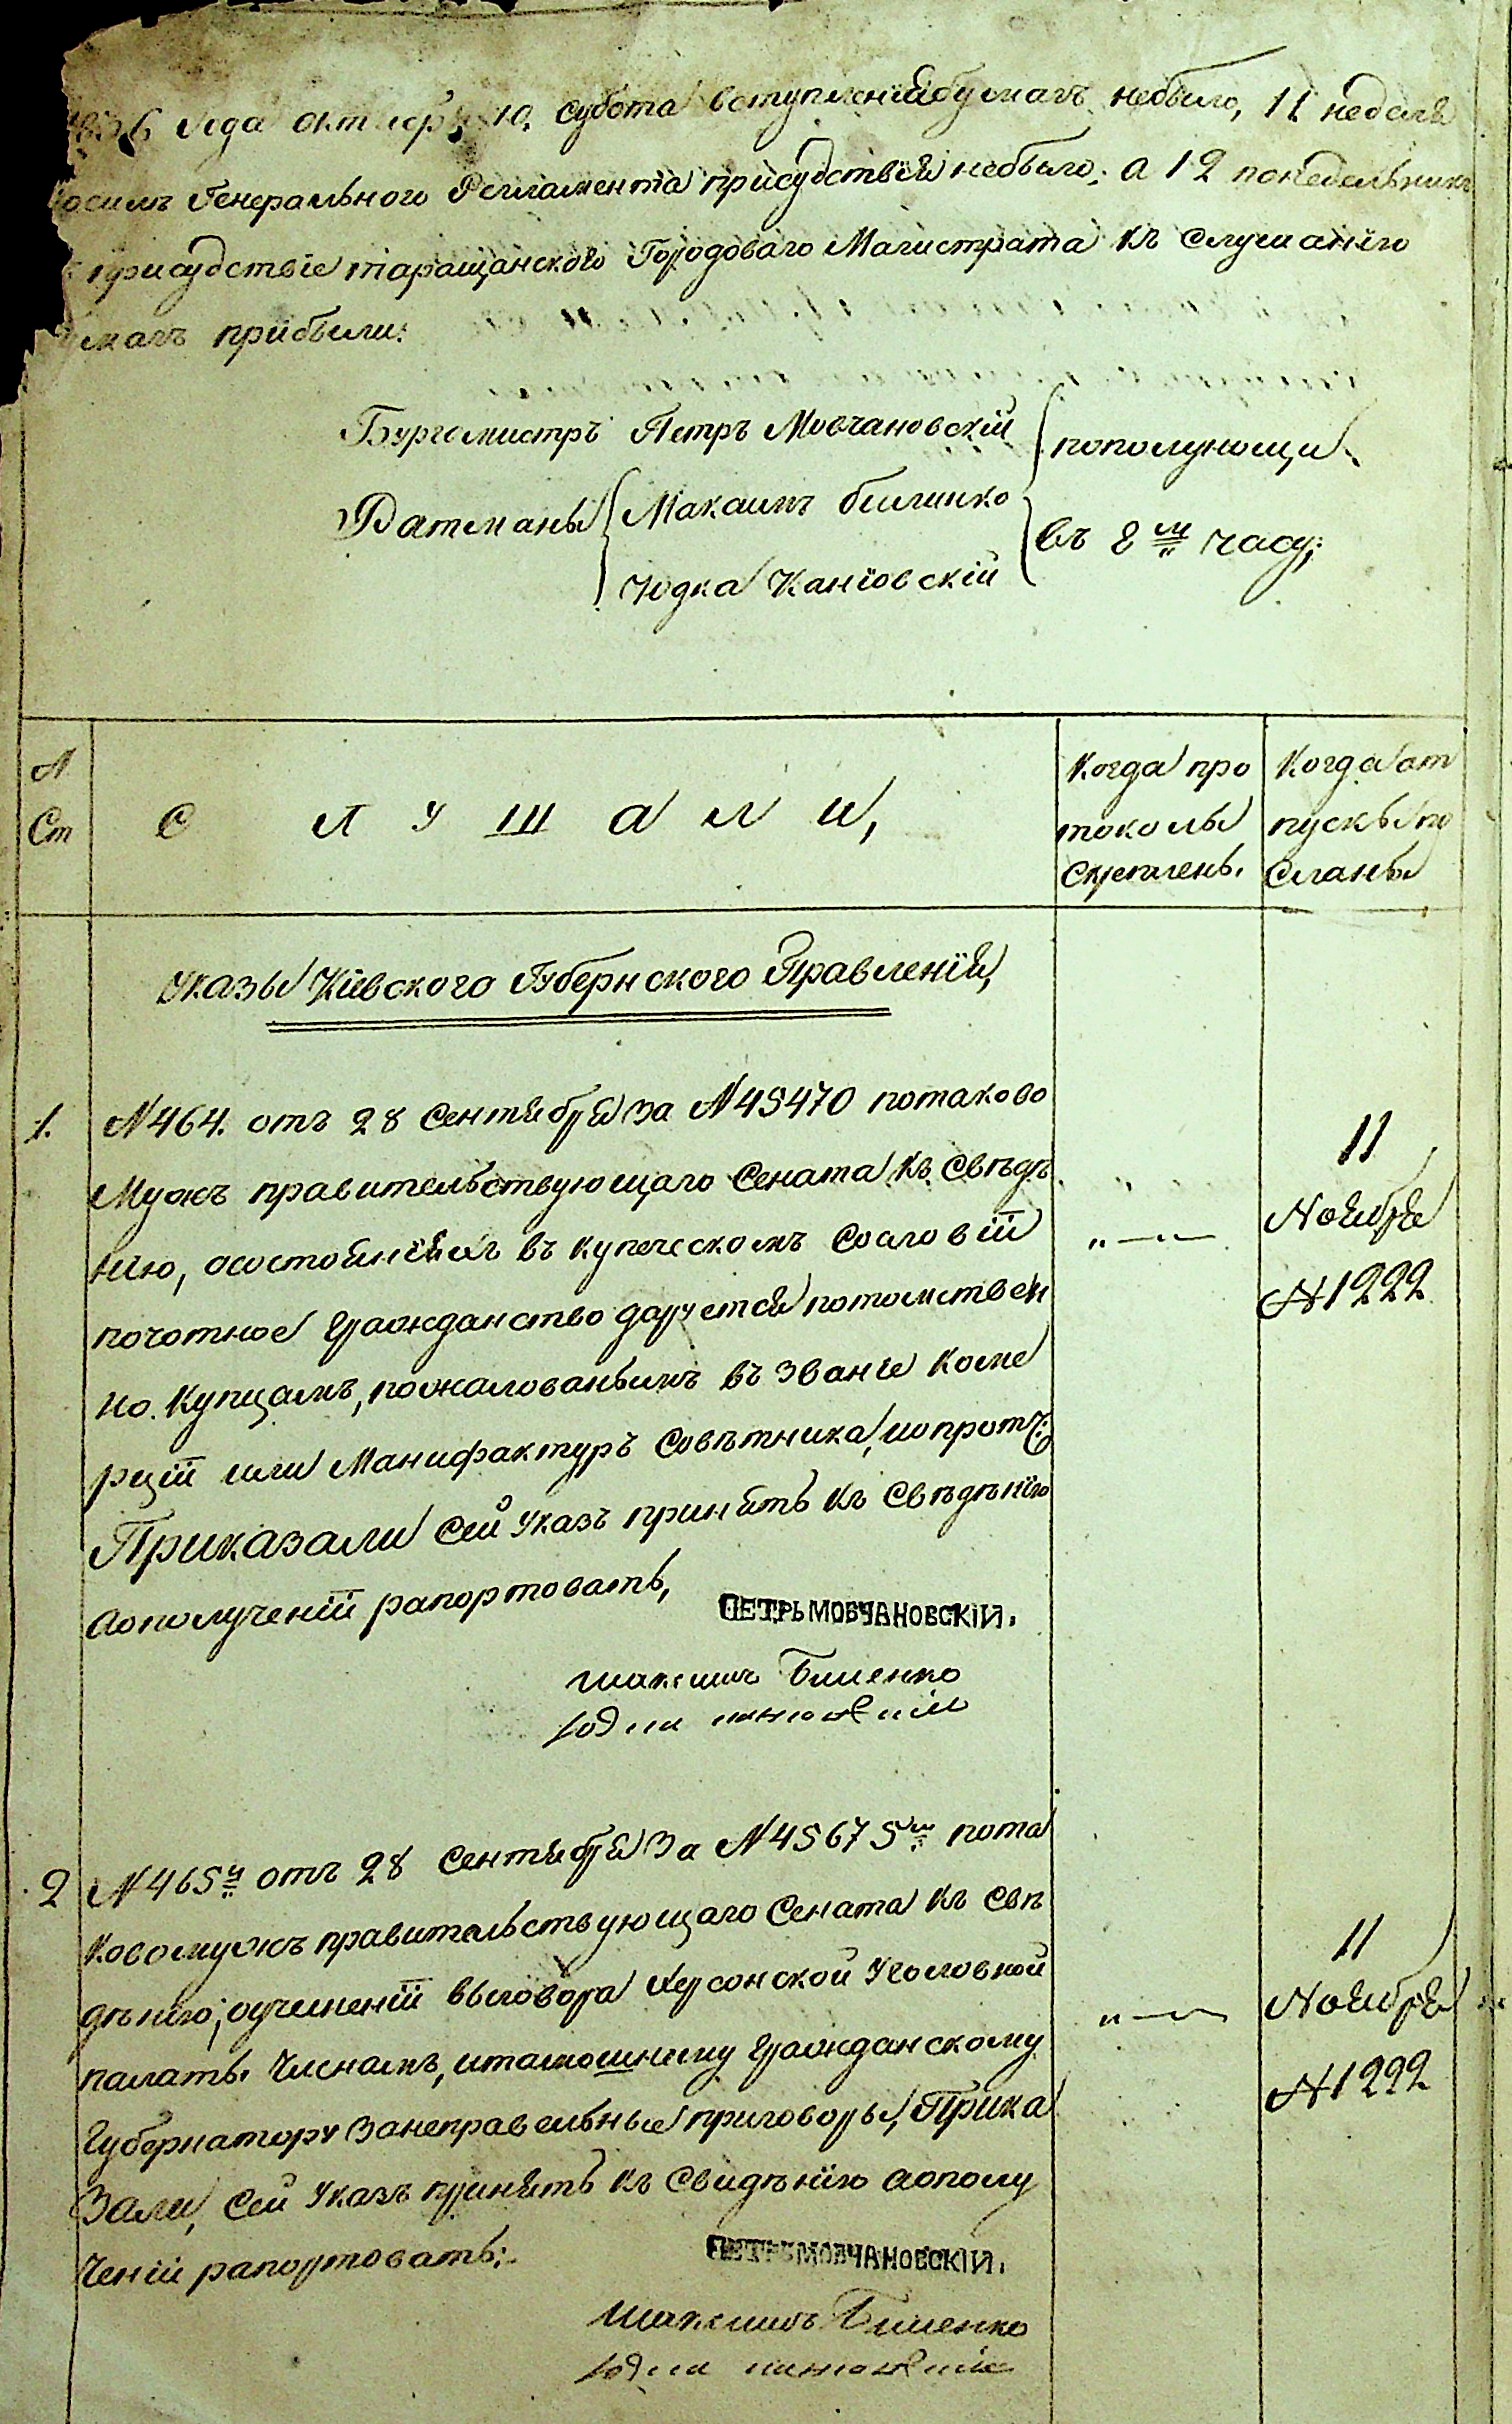 1836 года октября 10. субота вступленій бумагъ небыло, 11 неделя
посилѣ Генеральнаго Регламента присудствія небыло; а 12 понедельникъ
присудствіе таращанского Городоваго Магистрата къ слушанію
бумагъ прибыли:
Бургомистръ Петръ Мовчановскій
пополунощи
Ратманы
Максимъ билинко
въ 8м часу;
Юдка Каніовскій
№ Ст
С Л У Ш А Л И,
Когда про
токолы
скреплены.
Когда от
пуски по
сланы
Указы Кіевского Губернского Правленія,
1. №464. отъ 28 Сентября за №45470 потаково
Мужъ правительствующаго Сената къ Свѣдѣ
нію, осостояніяхъ въ купеческомъ Сословіи
почотное Гражданство даруется потомствен
но. Купцамъ, пожалованымъ въ званіе Коме
рціи или Манифактуръ Совѣтника, ипротч:
Приказали Сей Указъ принять къ Свѣдѣнію
аополученіи рапортовать,
ПЕТРЪ МОВЧАНОВСКІЙ.
Максимъ Билиенко
Юдка
"—"—
11
Ноября
№1222
2 №465й отъ 28 Сентября За №45675м пота
ковомужъ правительствующаго Сената къ Свѣ
дѣнію; оучиненіи выговора Херсонской Уголовной
палаты Члснамъ, итамошнему Гражданскому
Губернатору Занеправельные приговоры, Прика
Зали, Сей Указъ принять къ Свидѣнію аополу
Ченіи рапортовать;
ПЕТРЪ МОВЧАНОВСКІЙ.
Максимъ Билиенко
Юдка
"—"—
11
Ноября
№1222